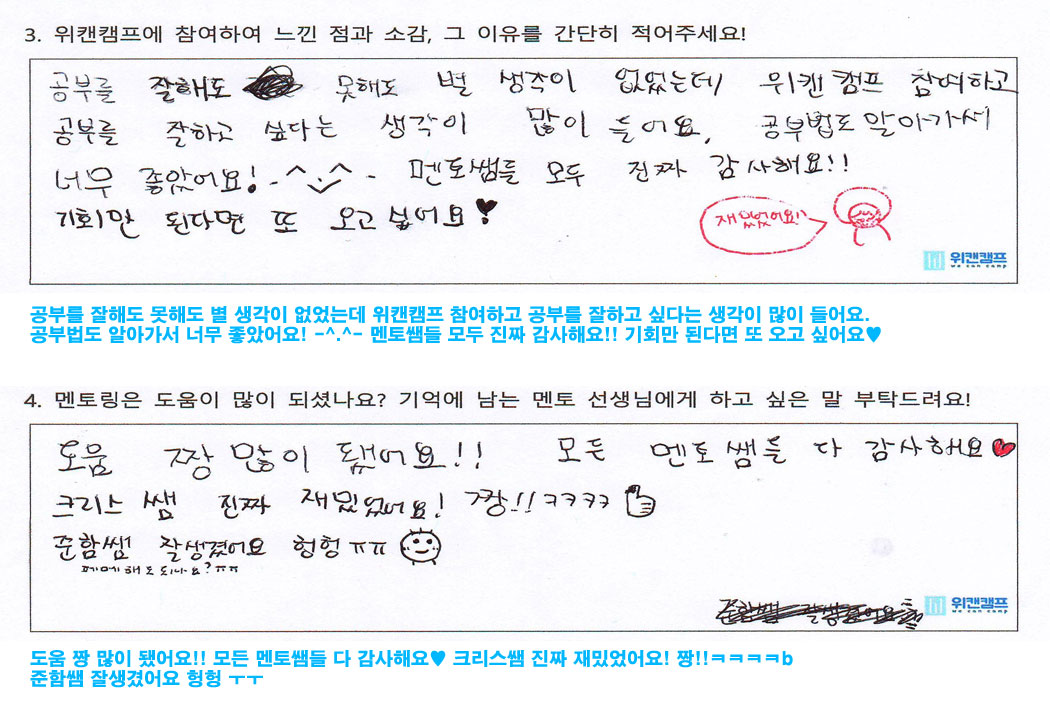 3. 위캔캠프에 참여하여 느낀 점과 소감, 그 이유를 간단히 적어주세요!
공부를 잘해도 못해도 별 생각이 없었는데 위캔캠프 참여하고
공부를 잘하고 싶다는 생각이 많이 들어요. 공부법도 알아가서
너무 좋았어요! -^.^- 멘토쌤들 모두 진짜 감사해요!!
기회만 된다면 또 오고 싶어요♥
재밌었어요!!
위캔캠프
we can camp
공부를 잘해도 못해도 별 생각이 없었는데 위캔캠프 참여하고 공부를 잘하고 싶다는 생각이 많이 들어요.
공부법도 알아가서 너무 좋았어요! -^.^- 멘토쌤들 모두 진짜 감사해요!! 기회만 된다면 또 오고 싶어요♥
4. 멘토링은 도움이 많이 되셨나요? 기억에 남는 멘토 선생님에게 하고 싶은 말 부탁드려요!
도움 짱 많이 됐어요!! 모든 멘토쌤들 다 감사해요♥
크리스쌤 진짜 재밌었어요! 짱!!ㅋㅋㅋㅋ
준함쌤 잘생겼어요 헝헝 ㅠㅠ
페메해도 되나요?ㅠㅠ
준함쌤 잘생겼어요
위캔캠프
we can camp
도움 짱 많이 됐어요!! 모든 멘토쌤들 다 감사해요♥ 크리스쌤 진짜 재밌었어요! 짱!!ㅋㅋㅋㅋb
준함쌤 잘생겼어요 헝헝 ㅜㅜ